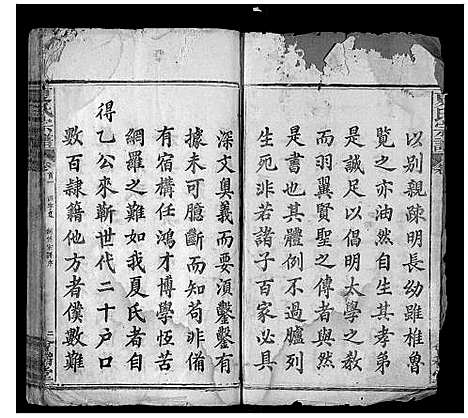 夏氏宗譜
以别親疎明長幼雖椎魯
覽之亦油然自生其孝弟
是誠足以倡明大學之敎
而羽翼賢聖之傳者與然
書也其體例不過臚列
生死非若諸子百家必具
深文奥義而要須鑿鑿有
據未可臆斷而知苟非備
有宿搆任鴻才博學恆苦
網羅之難如我夏氏者自
得乙公來蘄世代二十戸口
數百隷籍他方者僕數難
夏氏宗譜